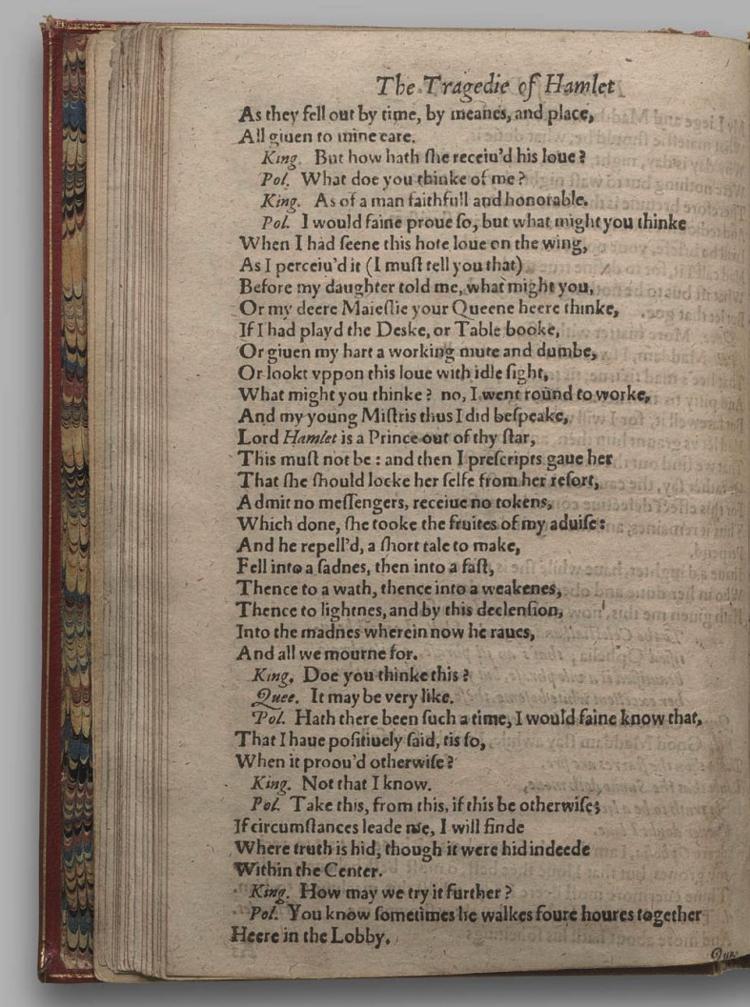 The Tragedie of Hamlet
As they fell out by time, by meanes, and place,
All giuen to mine eare.
King. But how hath ſhe receiu'd his loue?
Pol. What doe you thinke of me?
King. As of a man faithfull and honorable.
Pol. I would faine proue ſo, but what might you thinke
When I had ſeene this hote loue on the wing,
As I perceiu'd it (I muſt tell you that)
Before my daughter told me, what might you,
Or my deere Maieſtie your Queene heere thinke,
If I had playd the Deske, or Table booke,
Or giuen my hart a working mute and dumbe,
Or lookt vppon this loue with idle ſight,
What might you thinke? no, I went round to worke,
And my young Miſtris thus I did beſpeake,
Lord Hamlet is a Prince out of thy ſtar,
This muſt not be: and then I preſcripts gaue her
That ſhe ſhould locke her ſelfe from her reſort,
Admit no meſſengers, receiue no tokens,
Which done, ſhe tooke the fruites of my aduiſe:
And he repell'd, a ſhort tale to make,
Fell into a ſadnes, then into a faſt,
Thence to a wath, thence into a weakenes,
Thence to lightnes, and by this declenſion,
Into the madnes wherein now he raues,
And all we mourne for.
King. Doe you thinke this?
Quee. It may be very like.
Pol. Hath there been ſuch a time, I would faine know that,
That I haue poſitiuely ſaid, tis ſo,
When it proou'd otherwiſe?
King. Not that I know.
Pol. Take this, from this, if this be otherwiſe;
If circumſtances leade me, I will finde
Where truth is hid, though it were hid indeede
Within the Center.
King. How may we try it further?
Pol. You know ſometimes he walkes foure houres together
Heere in the Lobby.